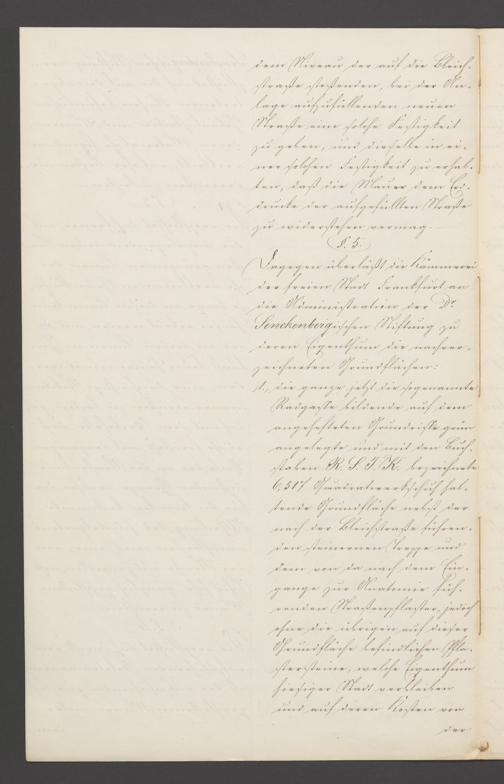 dem Niveau der auf die Bleich-
straße stoßenden, bei der An-
lage aufzufüllenden neuen
Straße eine solche Festigkeit
zu geben, und dieselbe in ei-
ner solchen Festigkeit zu erhal-
ten, daß die Mauer dem Erd-
drucke der aufgefüllten Straße
zu widerstehen vermag.
§. 5.
Dagegen überläßt die Kämmerei
der freien Stadt Frankfurt an
die Administration der Dr
Senckenbergischen Stiftung zu
deren Eigenthum die nachver-
zeichneten Grundflächen:
1., die ganze jetzt die sogenannte
Radgasse bildende auf dem
angehefteten Grundrisse grün
angelegte und mit den Buch-
staben R. S. T. K. bezeichnete
6,517 Quadratwerkschuh hal-
tende Grundfläche nebst der
nach der Bleichstraße führen-
den steinernen Treppe und
dem von da nach dem Ein-
gange zur Anatomie füh-
renden Straßenpflaster, jedoch
ohne die übrigen auf dieser
Grundfläche befindlichen Pfla-
stersteine, welche Eigenthum
hiesiger Stadt verbleiben
und auf deren Kosten von
der